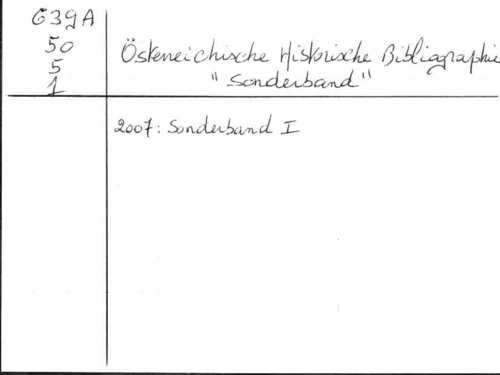 G39A
50
5
1
Östeneichische Historische Bibliographie
"Sonderband"
2007: Sonderband I